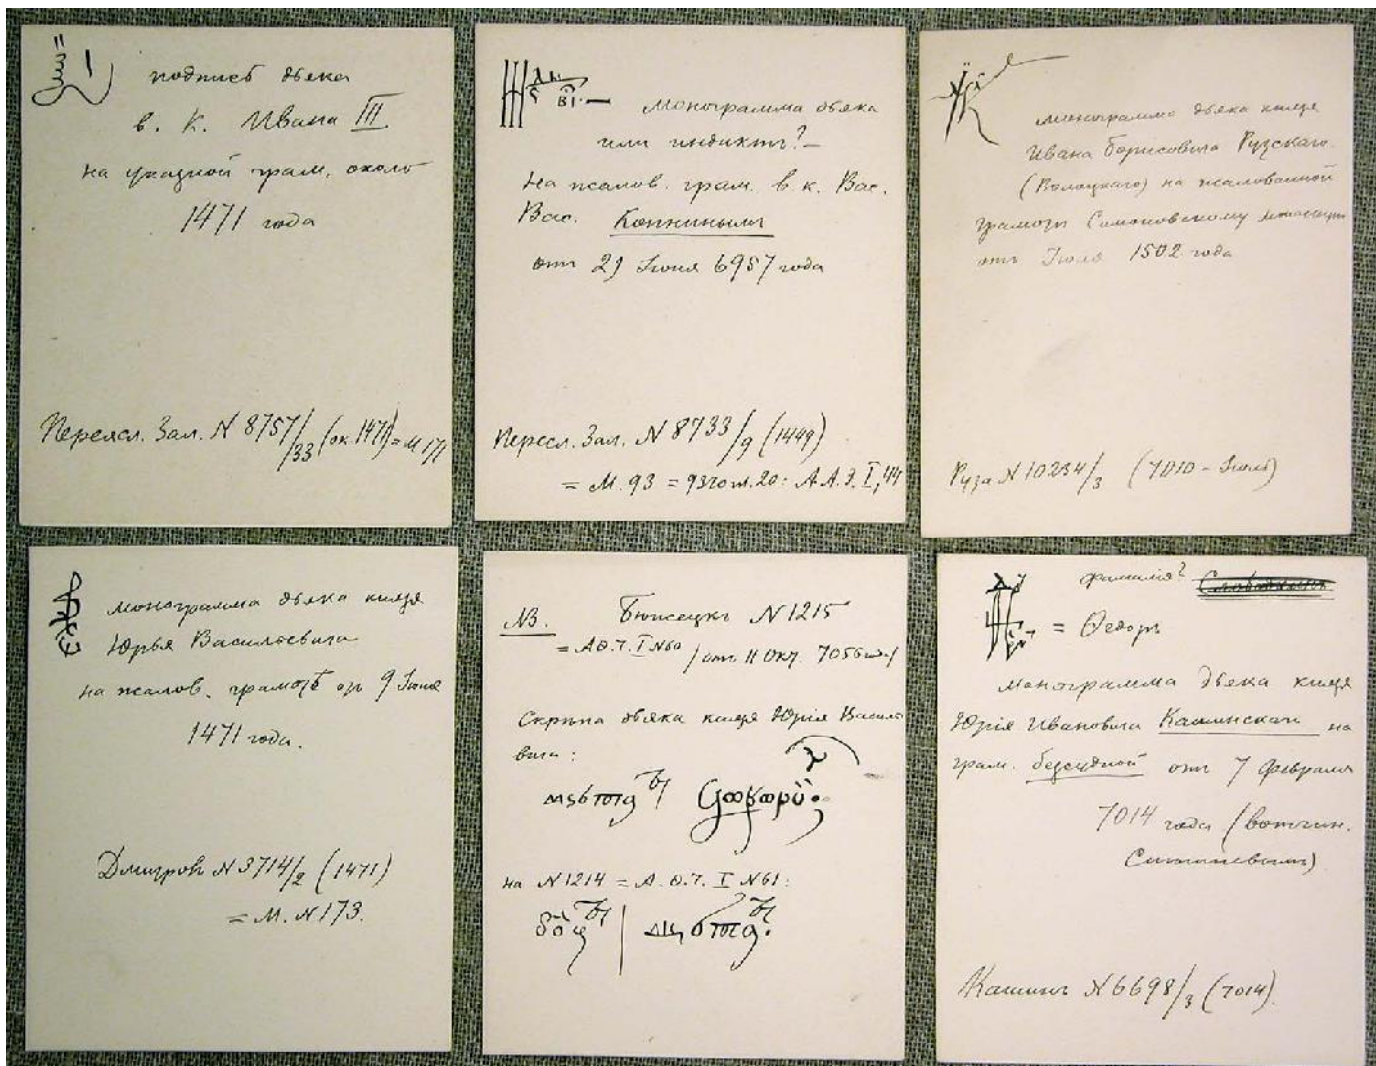 подпись дьяка
в. К. Ивана III
на указной грам. около
1471 года
Переясл. Зал. N 8757/33 (ок. 1471) = М 171
Монограмма дьяка
или индиктъ? –
На жалов. грам. в. к. Вас.
Вас.
отъ 29 Iюня 6957 года
Пересл. Зал. N 8733/9 (1449)
= М. 93 = 93 20: А.А.Э. I, 44
Монограмма дьяка князя
Ивана Борисовича Рузскаго
(Волоцкаго) на жалованной
грамотѣ Симоновскому
отъ Iюля 1502 года
Руза N 10234/3 (7010 – Iюль)
монограмма дьяка князя
Юрья Васильевича
на жалов. грамотѣ отъ 9 Iюня
1471 года.
Дмитровъ N 3714/2 (1471)
= М. N 173.
NB. Бѣжецкъ N 1215
= А.Ю. I N 60 / отъ 11 Окт. 7056
Скрѣпа дьяка князя Юрiя Василь
вича:
на N 1214 = А. Ю. I N 61:
фамилiя?
= Ѳедоръ
Монограмма дьяка князя
Юрiя Ивановича Кашинскаго на
грам. безсудной отъ 7 Февраля
7014 года (вотчин.
Кашинъ N 6698/3 (7014)